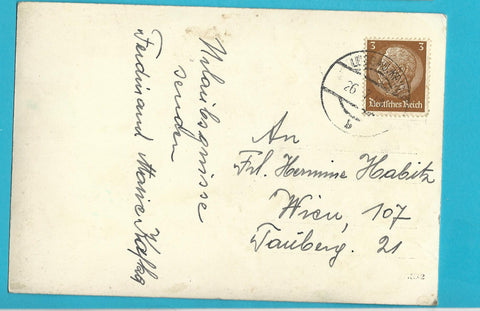 Urlaubsgrüsse
senden
Ferdinand Marie Kafka
3 3
Deutsches Reich
26
b
An
Frl. Hermine Habitz
Wien, 107
Tauberg. 21